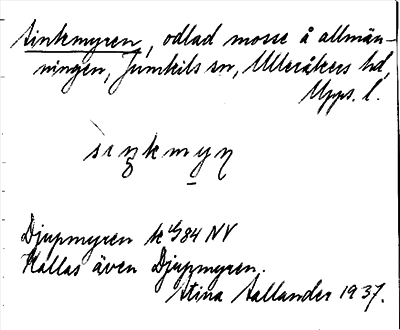 Sinkmyren, odlad mosse å allmän-
ningen, Jumkils sn, Ulleråkers hd,
Upps. l.
sɩŋkmyɳ
Djupmyren k 84 NV
Kallas även Djupmyren.
Stina Sallander 1937.